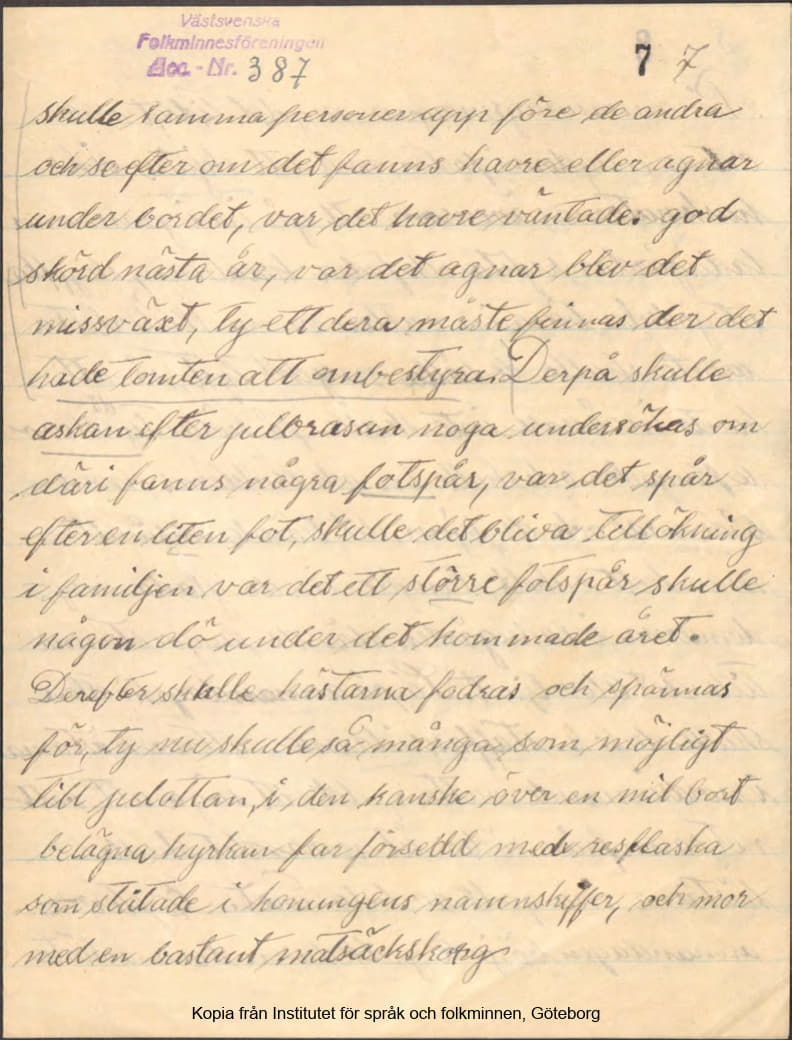 Västsvenska
Folkminnesföreningen
Acc.-Nr. 387
7 7
skulle samma personer upp före de andra
och se efter om det fanns havre eller agnar
under bordet, var det havre väntade god
skörd nästa år, var det agnar blev det
missväxt, ty ett dera måste finnas der det
hade tomten att ombestyra. Derpå skulle
askan efter julbrasan noga undersökas om
däri fanns några fotspår, var det spår
efter en liten fot, skulle det bliva tillökning
i familjen var det ett större fotspår skulle
någon dö under det kommade året.
Derefter skulle hästarna fodras och spännas
för, ty nu skulle så många som möjligt
till julottan, i den kanske över en mil bort
belägna kyrkan far försedd med resflaska
som ståtade i konungens namnskiffer, och mor
med en bastant matsäckskorg
Kopia från Institutet för språk och folkminnen, Göteborg